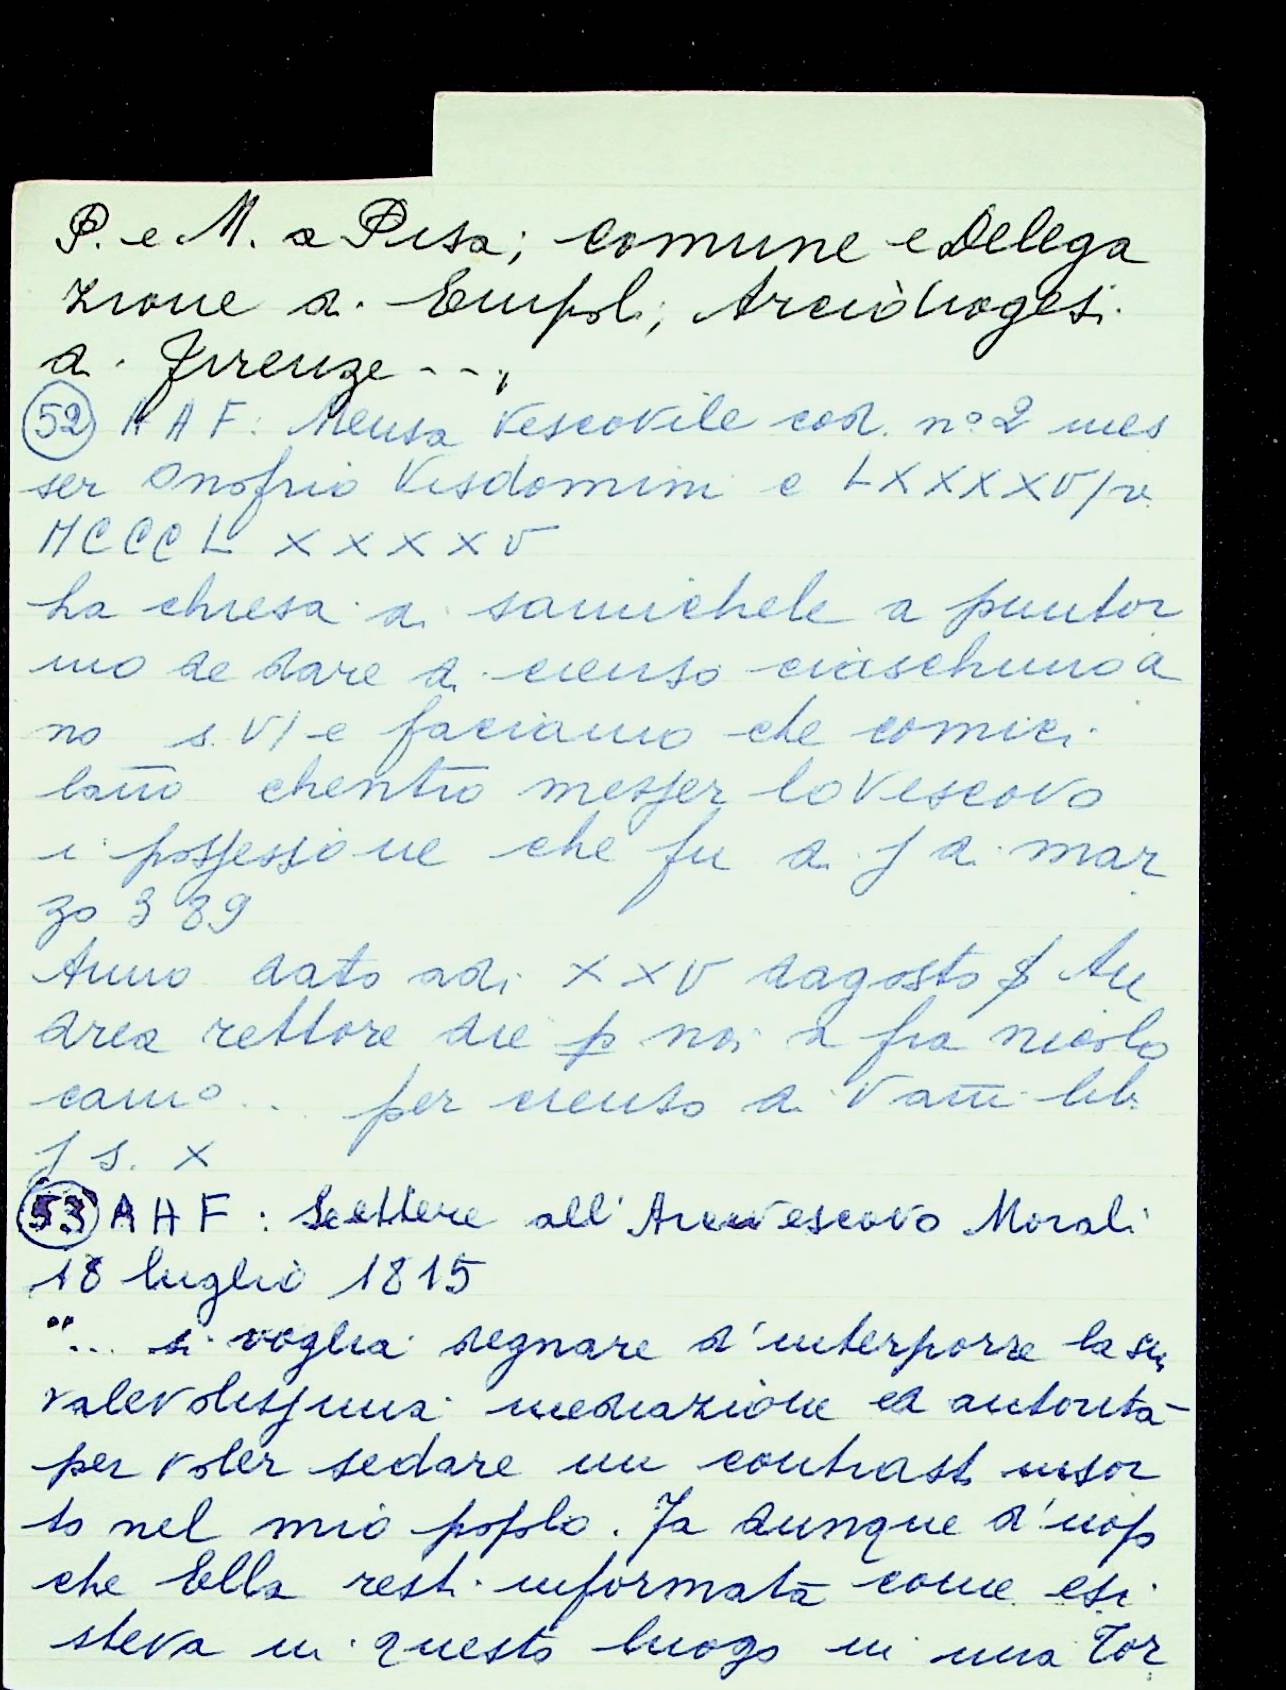 P. e M. a Pisa; comune e Delega
zione di Empoli; Arcidiogesi
di Firenze ---,
52 A A F: Mensa Vescovile cod. n° 2 mes
ser Onofrio Visdomini c LXXXXV/r.
MCCCLXXXXV
La chiesa di samichele a puntor
mo de dare di cienso ciaschuno a
no s. VI e faciamo che comici
lano chentro messer lo Vescovo
i possessione che fu a. j di mar
zo 389
Anno dato adi XXV dagosto $ An
drea rettore die p noi a fra nicolo
camo... per cienso di V ani lib.
j s. X
53 A A F: Lettere all'Arcivescovo Morali
18 luglio 1815
"... si voglia degnare d'interporre la su
valevolissima mediazione ed autorità
per voler sedare un contrasto insor
to nel mio popolo. Fa dunque d'uopo
che Ella resti informata come esi
steva in questo luogo in una Tor